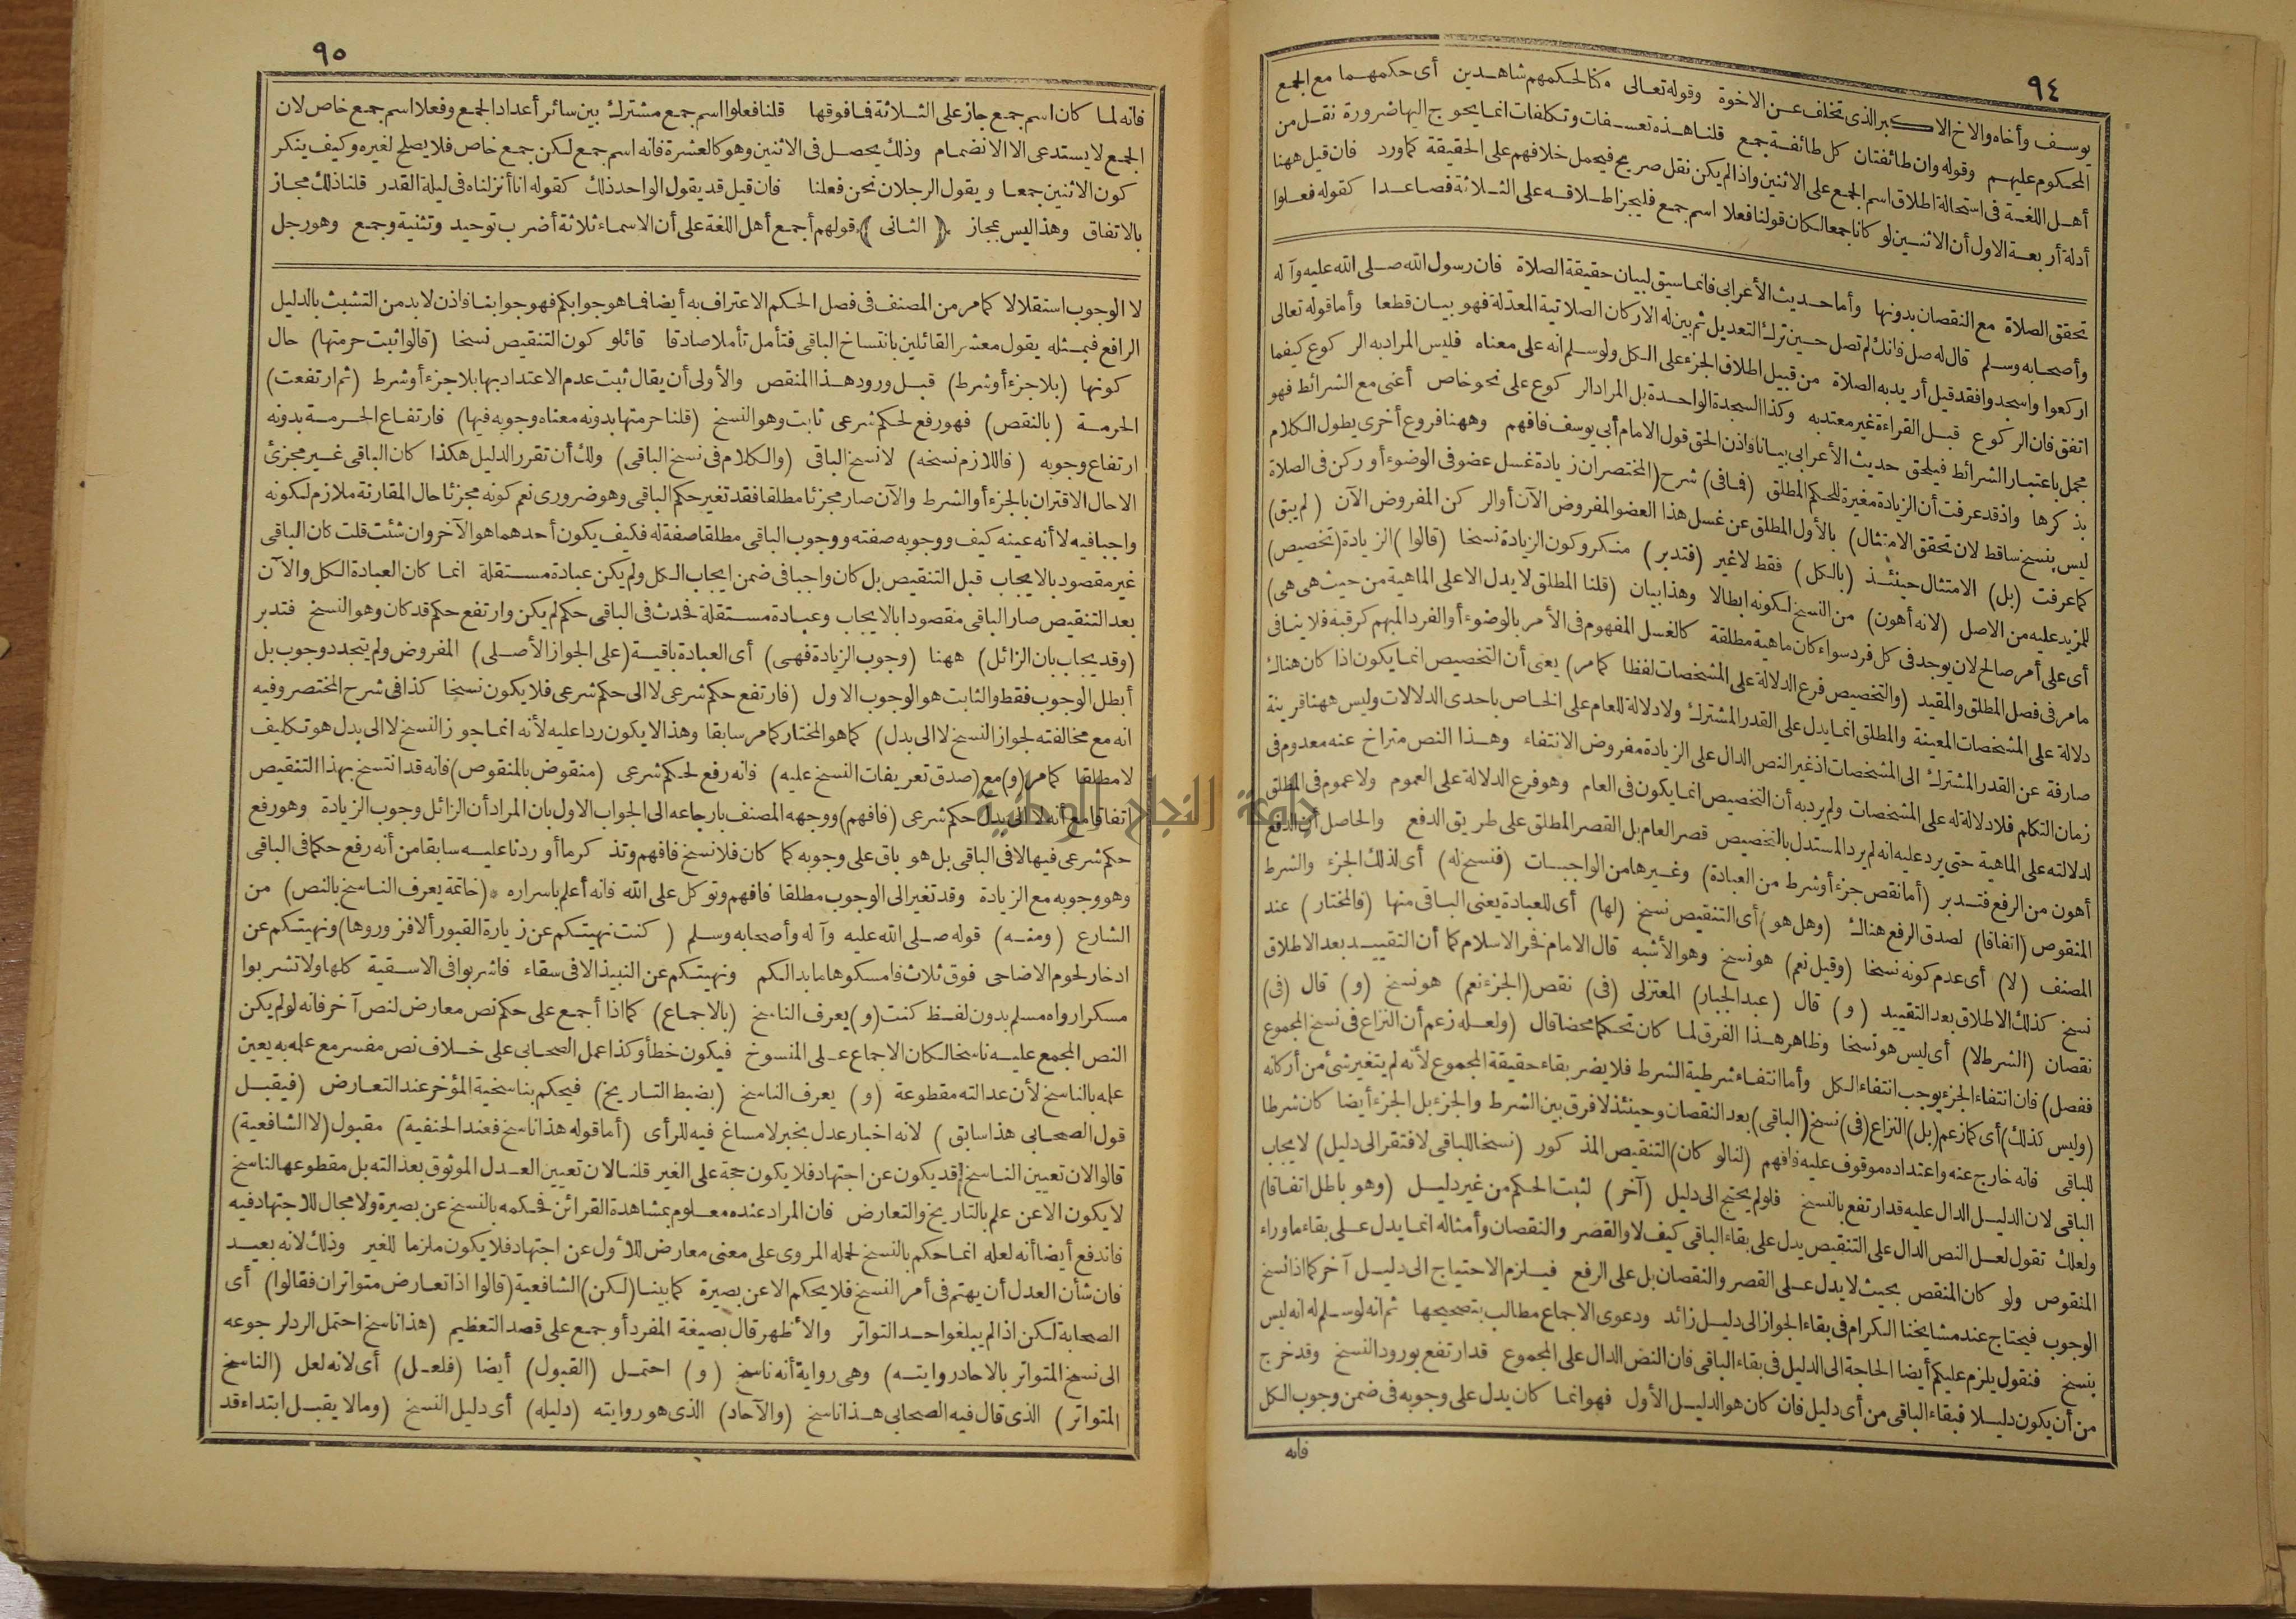 ٩٤
يوسف وأخاه والاخ الاكبر الذى تخلف عن الاخوة وقوله تعالى وكنا لحكمهم شاهدين أى حكمهما مع الجمع
المحكوم عليهم وقوله وان طائفتان كل طائفة جمع قلنا هذه تعسفات وتكلفات انما يحوج اليها ضرورة نقل من
أهل اللغة فى استحالة اطلاق اسم الجمع على الاثنين واذا لم يكن نقل صريح فيحمل خلافهم على الحقيقة كما ورد فان قيل ههنا
أدلة أربعة الاول أن الاثنين لو كانا جمعا لكان قولنا فعلا اسم جمع فليجز اطلاقه على الثلاثة فصاعدا كقوله فعلوا
تحقق الصلاة مع النقصان بدونها وأما حديث الأعرابى فانما سيق لبيان حقيقة الصلاة فان رسول الله صلى الله عليه وآله
وأصحابه وسلم قال له صل فانك لم تصل حين ترك التعديل ثم بين له الاركان الصلاتية المعدلة فهو بيان قطعا وأما قوله تعالى
اركعوا واسجدوا فقد قيل أريد به الصلاة من قبيل اطلاق الجزء على الكل ولو سلم انه على معناه فليس المراد به الركوع كيفما
اتفق فان الركوع قبل القراءة غير معتد به وكذا السجدة الواحدة بل المراد الركوع على نحو خاص أعنى مع الشرائط فهو
مجمل باعتبار الشرائط فيلحق حديث الأعرابى بيانا فاذن الحق قول الامام أبى يوسف فافهم وههنا فروع أخرى يطول الكلام
بذكرها واذ قد عرفت أن الزيادة مغيرة للحكم المطلق (فما فى) شرح (المختصر ان زيادة غسل عضو فى الوضوء أو ركن فى الصلاة
ليس بنسخ ساقط لان تحقق الامتثال) بالأول المطلق عن غسل هذا العضو المفروض الآن أو الركن المفروض الآن (لم يبق)
كما عرفت (بل) الامتثال حينئذ (بالكل) فقط لا غير (فتدبر) منكرو كون الزيادة نسخا (قالوا) الزيادة (تخصيص)
للمزيد عليه من الاصل (لانه أهون) من النسخ لكونه ابطالا وهذا بيان (قلنا المطلق لا يدل الا على الماهية من حيث هى هى)
أى على أمر صالح لان يوجد فى كل فرد سواء كان ماهية مطلقة كالغسل المفهوم فى الأمر بالوضوء أو الفرد المبهم كرقبة فلا ينافى
ما مر فى فصل المطلق والمقيد (والتخصيص فرع الدلالة على المشخصات لفظا كما مر) يعنى أن التخصيص انما يكون اذا كان هناك
دلالة على المشخصات المعينة والمطلق انما يدل على القدر المشترك ولا دلالة للعام على الخاص باحدى الدلالات وليس ههنا قرينة
صارفة عن القدر المشترك الى المشخصات اذ غير النص الدال على الزيادة مفروض الانتفاء وهذا النص متراخ عنه معدوم فى
زمان التكلم فلا دلالة له على المشخصات ولم يرد به أن التخصيص انما يكون فى العام وهو فرع الدلالة على العموم ولا عموم فى المطلق
لدلالته على الماهية حتى يرد عليه انه لم يرد المستدل بالتخصيص قصر العام بل القصر المطلق على طريق الدفع والحاصل أن الدفع
أهون من الرفع فتدبر (أما نقص جزء أو شرط من العبادة) وغيرها من الواجبات (فنسخ له) أى لذلك الجزء والشرط
المنقوص (اتفاقا) لصدق الرفع هناك (وهل هو) أى التنقيص نسخ (لها) أى للعبادة يعنى الباقى منها (فالمختار) عند
المصنف (لا) أى عدم كونه نسخا (وقيل نعم) هو نسخ وهو الأشبه قال الامام فخر الاسلام كما أن التقييد بعد الاطلاق
نسخ كذلك الاطلاق بعد التقييد (و) قال (عبد الجبار) المعتزلى (فى) نقص (الجزء نعم) هو نسخ (و) قال (فى)
نقصان (الشرط لا) أى ليس هو نسخا وظاهر هذا الفرق لما كان تحكما محضا قال (ولعله زعم أن النزاع فى نسخ المجموع
ففصل) فان انتفاء الجزء يوجب انتفاء الكل وأما انتفاء شرطية الشرط فلا يضر بقاء حقيقة المجموع لأنه لم يتغير شئ من أركانه
(وليس كذلك) أى كما زعم (بل) النزاع (فى) نسخ (الباقى) بعد النقصان وحينئذ لا فرق بين الشرط والجزء بل الجزء أيضا كان شرطا
للباقى فانه خارج عنه واعتداده موقوف عليه فافهم (لنا لو كان) التنقيص المذكور (نسخا للباقى لافتقر الى دليل) لايجاب
الباقى لان الدليل الدال عليه قد ارتفع بالنسخ فلو لم يحتج الى دليل (آخر) لثبت الحكم من غير دليل (وهو باطل اتفاقا)
ولعلك تقول لعل النص الدال على التنقيص يدل على بقاء الباقى كيف لا والقصر والنقصان وأمثاله انما يدل على بقاء ما وراء
المنقوص ولو كان المنقص بحيث لا يدل على القصر والنقصان بل على الرفع فيلزم الاحتياج الى دليل آخر كما اذا نسخ
الوجوب فيحتاج عند مشايخنا الكرام فى بقاء الجواز الى دليل زائد ودعوى الاجماع مطالب بتصحيحها ثم انه لو سلم له انه ليس
بنسخ فنقول يلزم عليكم أيضا الحاجة الى الدليل فى بقاء الباقى فان النص الدال على المجموع قد ارتفع بورود النسخ وقد خرج
من أن يكون دليلا فبقاء الباقى من أى دليل فان كان هو الدليل الأول فهو انما كان يدل على وجوبه فى ضمن وجوب الكل
فانه
٩٥
فانه لما كان اسم جمع جاز على الثلاثة فما فوقها قلنا فعلوا اسم جمع مشترك بين سائر أعداد الجمع وفعلا اسم جمع خاص لان
الجمع لا يستدعى الا الانضمام وذلك يحصل فى الاثنين وهو كالعشرة فانه اسم جمع لكن جمع خاص فلا يصلح لغيره وكيف ينكر
كون الاثنين جمعا ويقول الرجلان نحن فعلنا فان قيل قد يقول الواحد ذلك كقوله انا أنزلناه فى ليلة القدر قلنا ذلك مجاز
بالاتفاق وهذا ليس بمجاز ﴿ الثانى ﴾ قولهم أجمع أهل اللغة على أن الاسماء ثلاثة أضرب توحيد وتثنية وجمع وهو رجل
لا الوجوب استقلالا كما مر من المصنف فى فصل الحكم الاعتراف به أيضا فما هو جوابكم فهو جوابنا فاذن لا بد من التشبث بالدليل
الرافع فبمثله يقول معشر القائلين بانتساخ الباقى فتأمل تأملا صادقا قائلو كون التنقيص نسخا (قالوا ثبت حرمتها) حال
كونها (بلا جزء أو شرط) قبل ورود هذا المنقص والأولى أن يقال ثبت عدم الاعتداد بها بلا جزء أو شرط (ثم ارتفعت)
الحرمة (بالنقص) فهو رفع لحكم شرعى ثابت وهو النسخ (قلنا حرمتها بدونه معناه وجوبه فيها) فارتفاع الحرمة بدونه
ارتفاع وجوبه (فاللازم نسخه) لا نسخ الباقى (والكلام فى نسخ الباقى) ولك أن تقرر الدليل هكذا كان الباقى غير مجزئ
الا حال الاقتران بالجزء أو الشرط والآن صار مجزئا مطلقا فقد تغير حكم الباقى وهو ضرورى نعم كونه مجزئا حال المقارنة ملازم لكونه
واجبا فيه لا أنه عينه كيف ووجوبه صفته ووجوب الباقى مطلقا صفة له فكيف يكون أحدهما هو الآخر وان شئت قلت كان الباقى
غير مقصود بالايجاب قبل التنقيص بل كان واجبا فى ضمن ايجاب الكل ولم يكن عبادة مستقلة انما كان العبادة الكل والآن
بعد التنقيص صار الباقى مقصودا بالايجاب وعبادة مستقلة فحدث فى الباقى حكم لم يكن وارتفع حكم قد كان وهو النسخ فتدبر
(وقد يجاب بان الزائل) ههنا (وجوب الزيادة فهى) أى العبادة باقية (على الجواز الأصلى) المفروض ولم يتجدد وجوب بل
أبطل الوجوب فقط والثابت هو الوجوب الاول (فارتفع حكم شرعى لا الى حكم شرعى فلا يكون نسخا كذا فى شرح المختصر وفيه
انه مع مخالفته لجواز النسخ لا الى بدل) كما هو المختار كما مر سابقا وهذا لا يكون ردا عليه لأنه انما جوز النسخ لا الى بدل هو تكليف
لا مطلقا كما مر (و) مع (صدق تعريفات النسخ عليه) فانه رفع لحكم شرعى (منقوض بالمنقوص) فانه قد انتسخ بهذا التنقيص
اتفاقا مع أنه لا الى بدل حكم شرعى (فافهم) ووجهه المصنف بارجاعه الى الجواب الاول بان المراد أن الزائل وجوب الزيادة وهو رفع
حكم شرعى فيها لا فى الباقى بل هو باق على وجوبه كما كان فلا نسخ فافهم وتذكر ما أوردنا عليه سابقا من أنه رفع حكما فى الباقى
وهو وجوبه مع الزيادة وقد تغير الى الوجوب مطلقا فافهم وتوكل على الله فانه أعلم باسراره * (خاتمة يعرف الناسخ بالنص) من
الشارع (ومنه) قوله صلى الله عليه وآله وأصحابه وسلم (كنت نهيتكم عن زيارة القبور ألا فزوروها) ونهيتكم عن
ادخار لحوم الاضاحى فوق ثلاث فامسكوها ما بدا لكم ونهيتكم عن النبيذ الا فى سقاء فاشربوا فى الاسقية كلها ولا تشربوا
مسكرا رواه مسلم بدون لفظ كنت (و) يعرف الناسخ (بالاجماع) كما اذا أجمع على حكم نص معارض لنص آخر فانه لو لم يكن
النص المجمع عليه ناسخا لكان الاجماع على المنسوخ فيكون خطأ وكذا عمل الصحابى على خلاف نص مفسر مع علمه به يعين
علمه بالناسخ لأن عدالته مقطوعة (و) يعرف الناسخ (بضبط التاريخ) فيحكم بناسخية المؤخر عند التعارض (فيقبل
قول الصحابى هذا سابق) لانه اخبار عدل بخبر لا مساغ فيه للرأى (أما قوله هذا ناسخ فعند الحنفية) مقبول (لا الشافعية)
قالوا لان تعيين الناسخ قد يكون عن اجتهاد فلا يكون حجة على الغير قلنا لان تعيين العدل الموثوق بعدالته بل مقطوعها الناسخ
لا يكون الا عن علم بالتاريخ والتعارض فان المراد عنده معلوم بمشاهدة القرائن فحكمه بالنسخ عن بصيرة ولا مجال للاجتهاد فيه
فاندفع أيضا أنه لعله انما حكم بالنسخ لحمله المروى على معنى معارض للأول عن اجتهاد فلا يكون ملزما للغير وذلك لانه بعيد
فان شأن العدل أن يهتم فى أمر النسخ فلا يحكم الا عن بصيرة كما بينا (لكن) الشافعية (قالوا اذا تعارض متواتران فقالوا) أى
الصحابة لكن اذا لم يبلغوا حد التواتر والأظهر قال بصيغة المفرد أو جمع على قصد التعظيم (هذا ناسخ احتمل الرد لرجوعه
الى نسخ المتواتر بالاحاد روايته) وهى رواية أنه ناسخ (و) احتمل (القبول) أيضا (فلعل) أى لانه لعل (الناسخ
المتواتر) الذى قال فيه الصحابى هذا ناسخ (والآحاد) الذى هو روايته (دليله) أى دليل النسخ (وما لا يقبل ابتداء قد
جامعة النجاح الوطنية